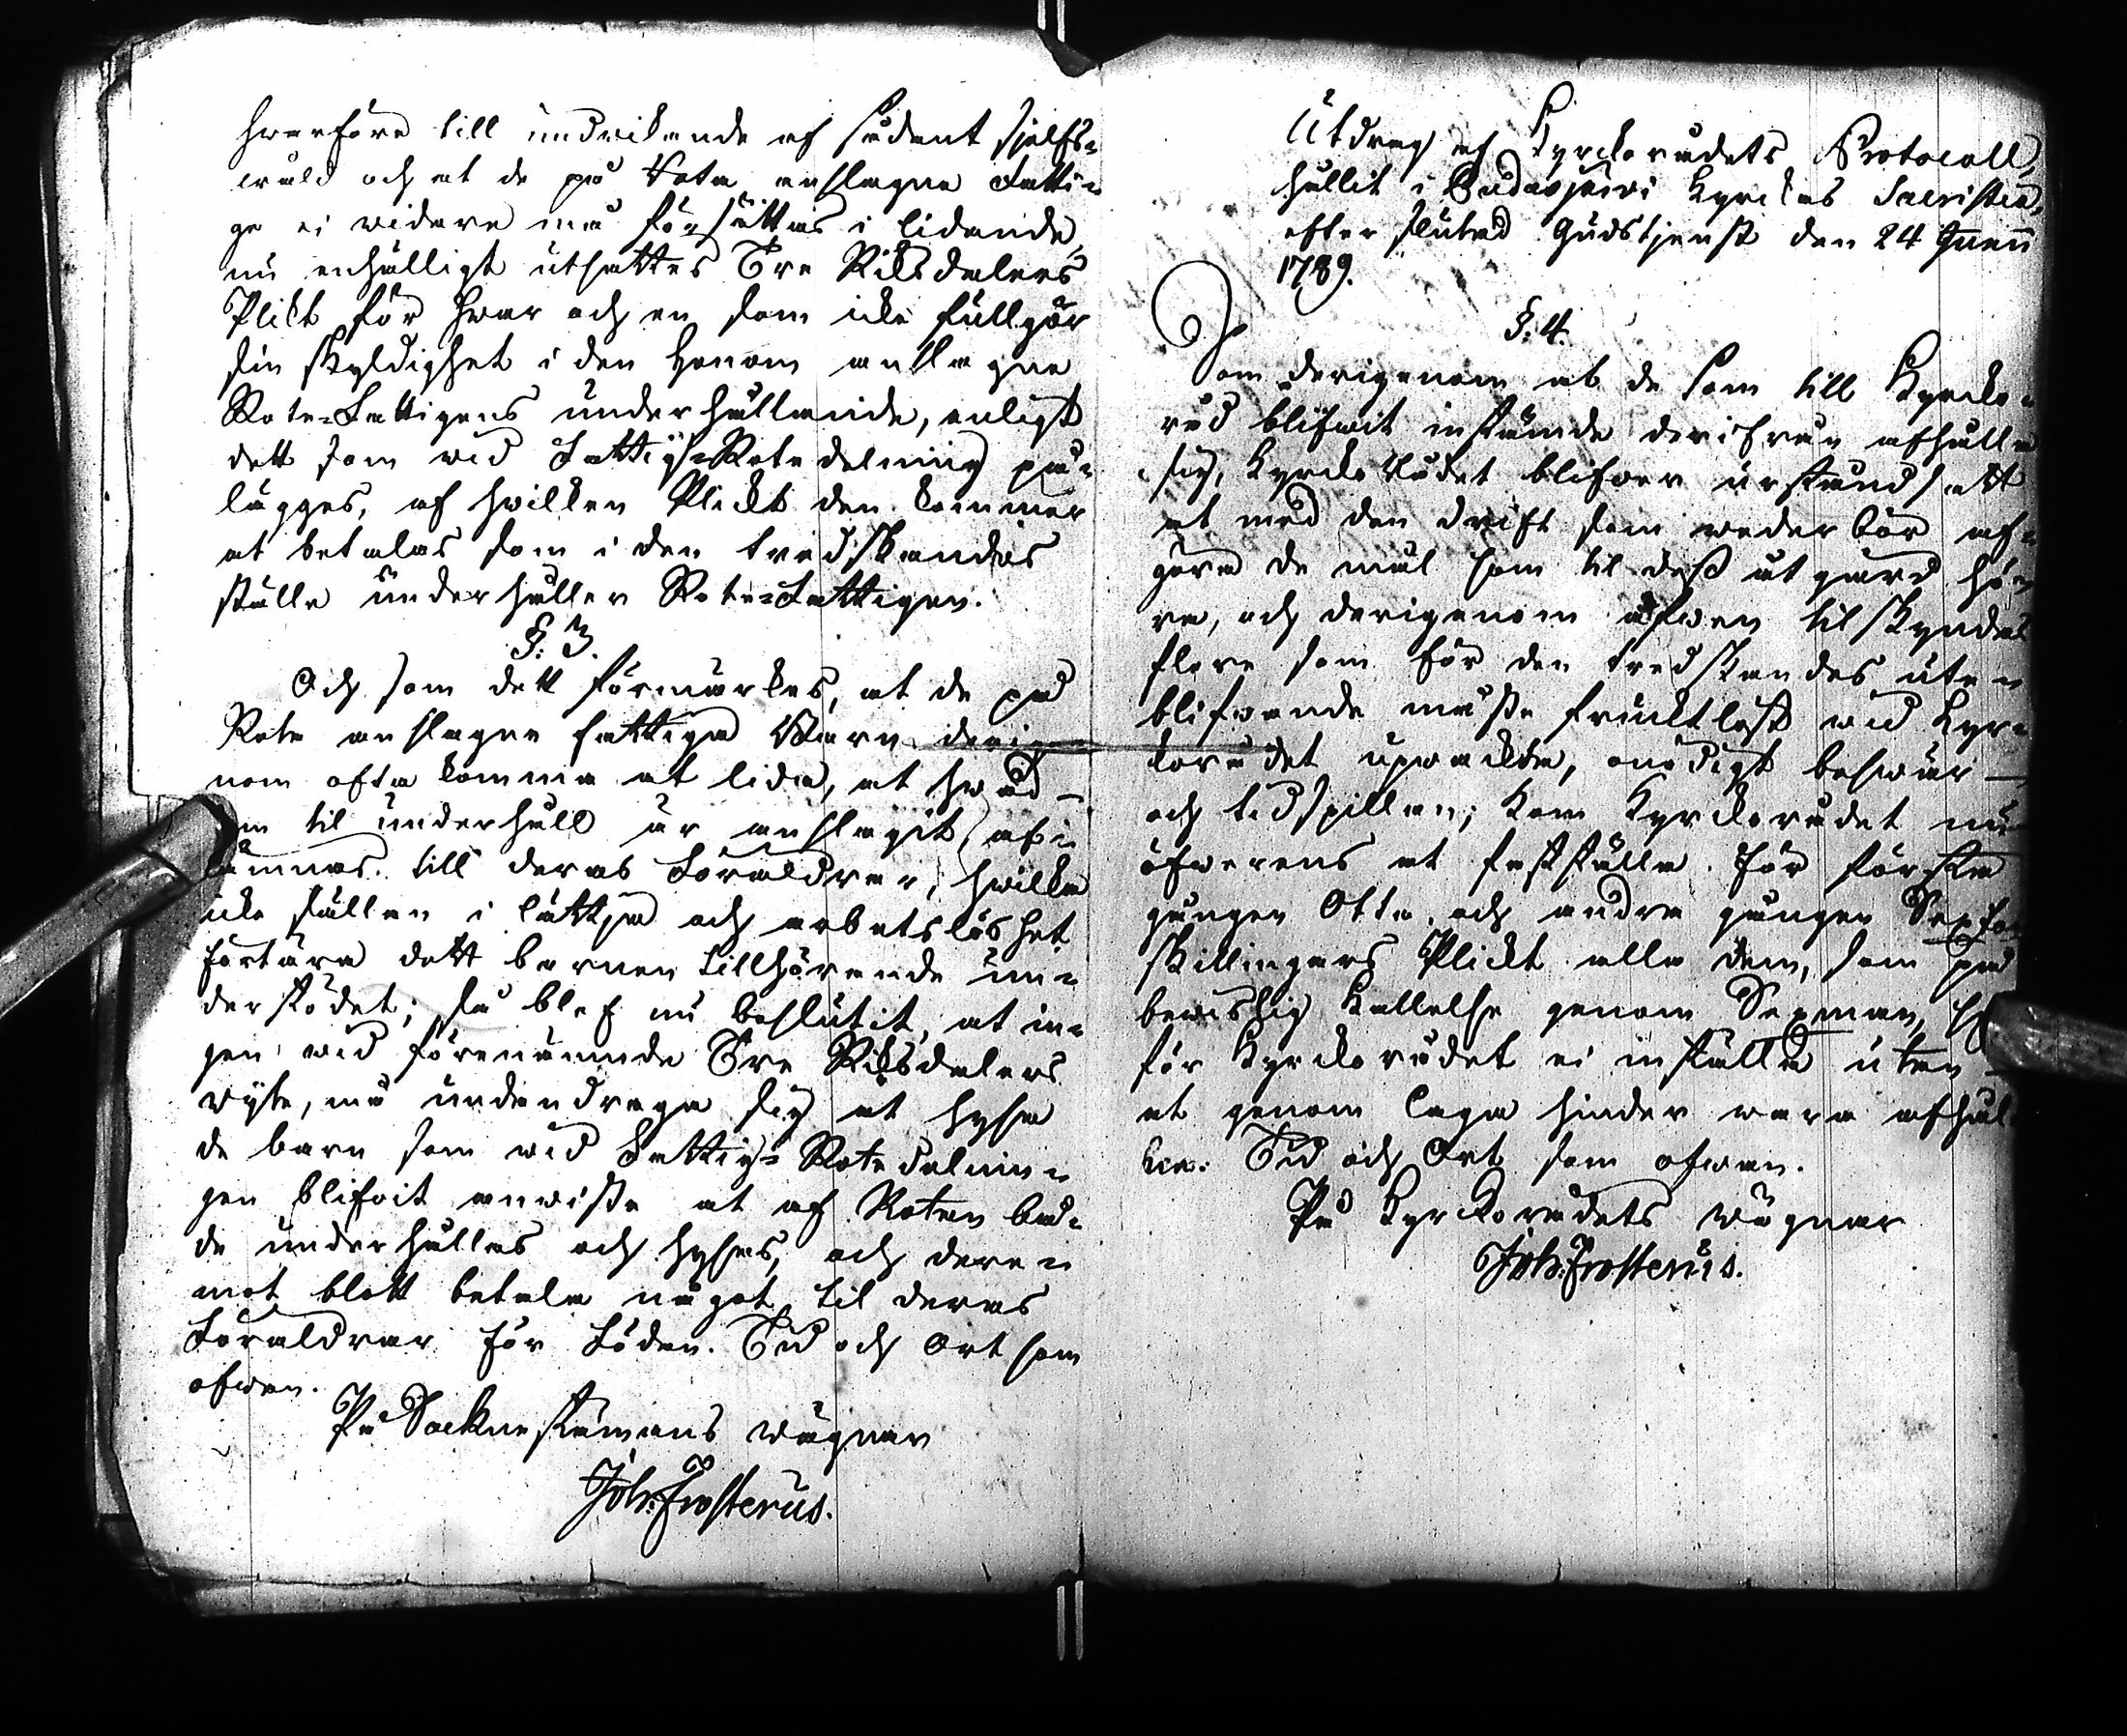 hwarföre till undwikande af sådant sjelfs-
wåld och at de på Rota anslagne Fatti-
ge ei widare må försättas i lidande,
nu enhälligt utsattes Tre Riksdalers
Plikt för hwar och en som icke fullgör
sin skyldighet i den honom anslagne
Rote-Fattigens underhållande, enligt
dett som wid Fattig-Rotedelning på-
lägges, af hwilken Plickt den kommer
at betalas som i den tredskandes
ställe underhåller Rote-Fattigen.
§. 3.
Och som dett förmärkes, at de på
Rota anslagne fattiga Barn derige-
nom ofta komma at lida, at hwad
til underhåll är anslagit, af-
lämnas till deras Föräldrar, hwilka
icke sällan i lättja och arbetslöshet
förtära dett barnen tillhörande un-
derstödet; så blef nu beslutit, at in-
gen wid förenämnde Tre Riksdalers
wyte, må undandraga sig at hysa
de barn som wid Fattig-Rotedelnin-
gen blifwit anwiste at af Roten bå-
de underhållas och hyses, och dere-
mot blott betala något til deras
Föräldrar för Föden. Tid och Ort som
ofwan.
På Sockne stämans wägnar
Joh: Frosterus.
Utdrag af Kyrckorådets Protocoll,
hållit i Pudasjärvi Kyrckas Sacristia,
efter slutad Gudstjenst den 24 Junii
1789.
§. 4.
Som derigenom at de som till Kyrcko-
råd blifwit instämde derifrån afhålla
sig, Kyrcko Rådet blifwer urståndsatt
at med den drift som wederbör af-
göra de mål som til dess åtgärd hö-
ra, och derigenom äfwen tilskyndas
flere som för den tredskandes ute-
blifwande måste fruktlöst wid Kyr-
korådet upwackta, onödigt beswär
och tidspillan; kom Kyrckorådet nu
öfwerens at fastställa för första
gången Otta, och andra gången Sexton
skillingars Plickt alla dem, som på
bewislig Kallelse genom Sexman,
för Kyrckorådet ei inställa utan
at genom laga hinder wara afhål-
lne. Tid och Ort som ofwan.
På Kyrckorådets wägnar
Joh: Frosterus.